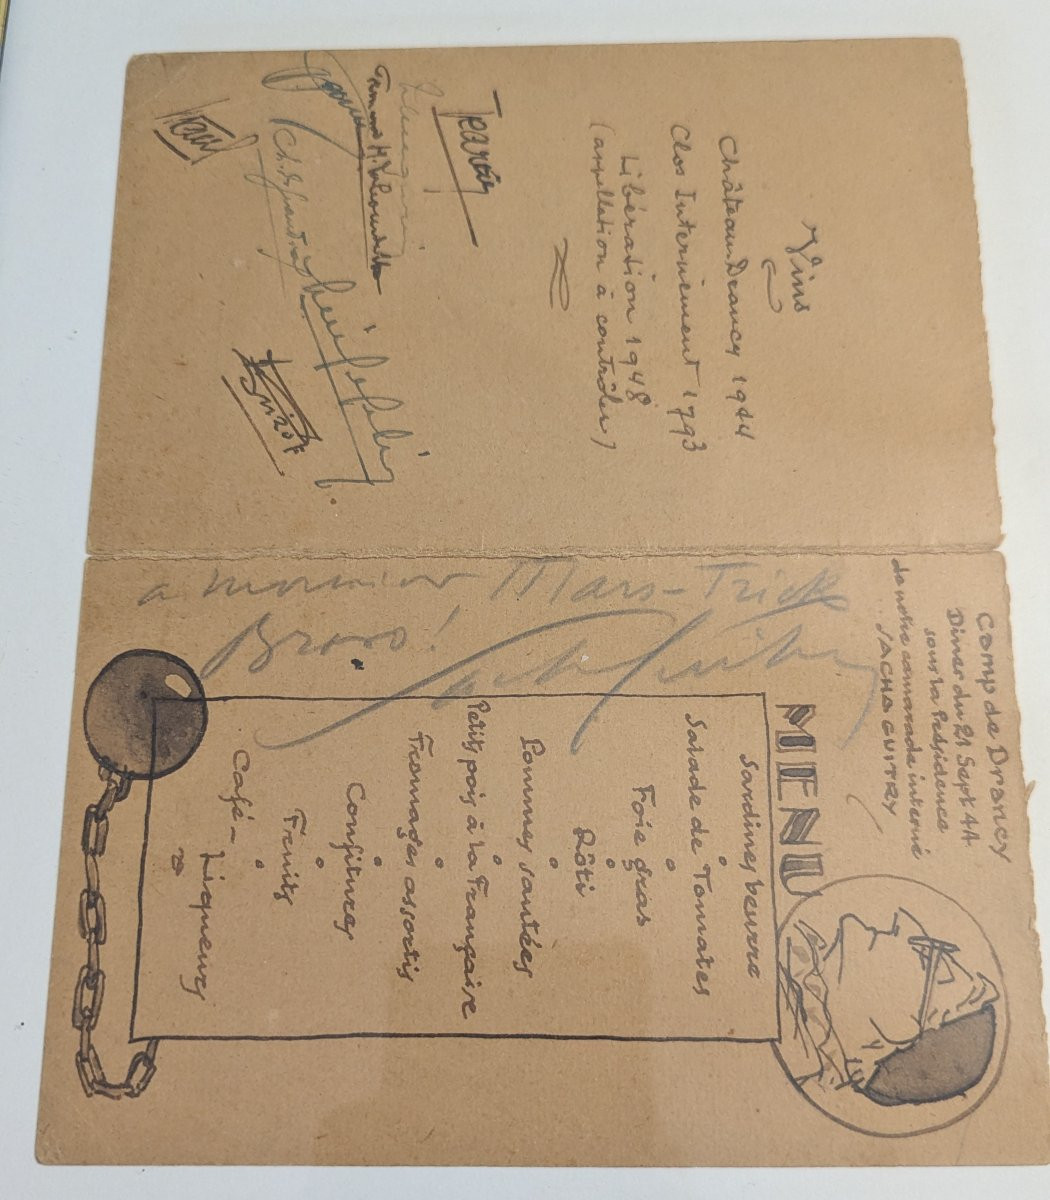 Vins
Château Drancy 1944
Clos Internement 1793
Libération 1948
(appellation à contrôler)
Camp de Drancy
Diner du 21 Sept 44
sous la Présidence
de notre camarade interné
SACHA GUITRY
MENU
Sardines beurre
Salade de Tomates
Foie gras
Rôti
Pommes sautées
Petits pois à la Française
Fromages assortis
Confitures
Fruits
Café - Liqueurs
a monsieur Mars-Trick
Bravo!
Sacha Guitry